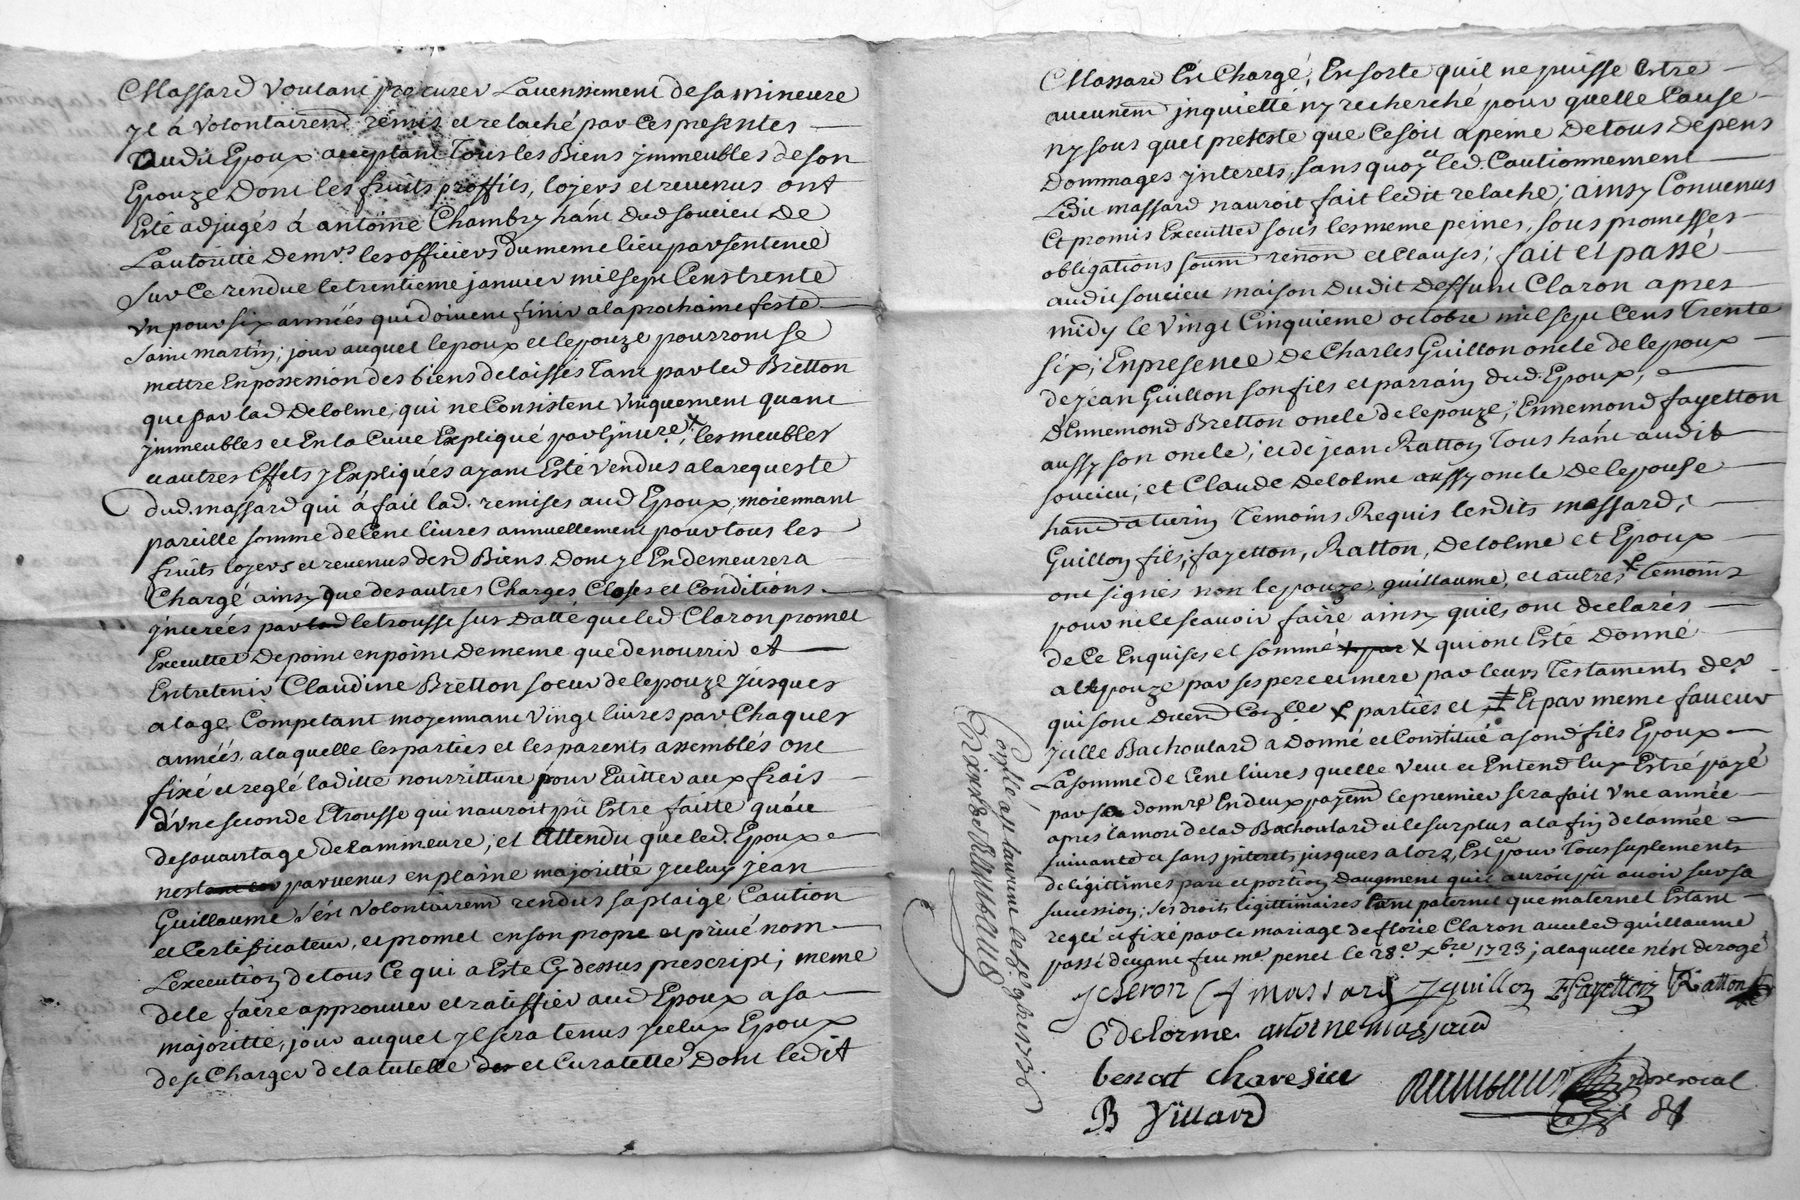 Massard voulant procurer l'avensement de sa mineure
yl á volontairemt remis et relaché par ces presentes
audit Epoux acceptant tous les Biens ymmeubles de son
Epouze Dont les fruits proffits, loyers et revenus ont
Esté adjugés á antoine Chambry hánt dud soucieu De
Lautorité de mrs les officiers du meme lieu par sentence
sur ce rendue le trentieme janvier mil sept Cens trente
un pour six années qui doivent finir a la prochaine feste
saint martin; jour auquel lepoux et lepouze pourront se
mettre En possession des biens delaissés tant par led Bretton
que par lad Delolme; qui ne Consistent vniquement quant
jmmeubles et En la Cuve Expliqué par linure; les meubles
et autres Effets y Expliqués ayant Esté vendus a la requeste
dud. massard qui á fait lad. remises aud Epoux; moiennant
pareille somme de Cent livres annuellement pour tous les
fruits loyers et revenus desd Biens Dont yl En demeurera
Chargé ainsy que des autres Charges Closes et Conditions
jnserées par letrousse sus Datté que led Claron promet
Executter De point en point De meme que de nourrir et
Entretenir Claudine Bretton soeur de lepouze jusques
a lage Competant moyennant vingt livres par Chaques
années, a laquelle les parties et les parents assemblés ont
fixé et reglé laditte nourritture pour Evitter aux frais
d'vne seconde Etrousse qui nauroit pü Estre faitte quáu
desavantage de la mineure; et Attendu que led. Epoux
nest parvenus en plaine majoritté jceluy jean
Guillaume s'ést volontairemt rendus sa plaige Caution
et Certifficateur, et promet en son propre et privé nom
Lexecution de tous Ce qui a Esté Cy dessus prescript; meme
de le faire approuver et ratiffier aud Epoux a sa
majoritté; jour auquel yl sera tenus jcelux Epoux
de se Charger de la tutelle et Curatelle Dont ledit
Massard Est Chargé; En sorte quil ne puisse Estre
aucunemt jnquietté ny recherché pour quelle Cause
ny sous quel preteste que Ce soit a peine De tous Depens
Dommages jnterets, sans quoy et led. Cautionnement
Ledit massard nauroit fait ledit relache; ainsy Convenus
Et promis Executter sous les meme peines, sous promesses
obligations soumn renonn et Clauses; fait et passé
audit soucieu maison Dudit Deffunt Claron apres
midy le vingt Cinquieme octobre mil sept Cens Trente
six; En presence De Charles Guillon oncle de lepoux
de jéan Guillon son fils et parrain dud. Epoux;
d'Ennemond Bretton oncle de lepouze, Ennemond fayetton
aussy son oncle; et de jean Ratton tous hánt audit
soucieu; et Claude Delolme aussy oncle De lepouse
hant a turin temoins Requis lesdits massard;
Guillon fils, fayetton, Ratton, Delolme et Epoux
ont signés non lepouze, guillaume, et autres X temoins
pour ne le scavoir faire ainsy quils ont declarés
de Ce Enquises et sommé X qui ont Esté Donné
a lepouze par ses pere et mere par leurs Testaments de
qui sont X parties et ‡ Et par meme faveur
Jelle Bachoulard a Donné et Constitué a sond fils Epoux
La somme de Cent livres quelle veut et Entend luy Estre payé
par sa donnre En deux payemt le premier sera fait vne année
apres la mort de lad Bachoulard et le surplus a la fin de lannée
suivante et sans jnterets jusques a lors, Et ce pour tous suplements
de légittimes part et portion Daugment quil auroit pü avoir sur sa
sucession; ses droits légittimaires tant paternel que maternel Estant
reglé et fixé par le mariage de florie Claron avec led guillaume
passé devant feu me penet le 28e xbre 1723; a laquelle nést derogé
C massard J guillon E fayetton Ratton
C delorme antoine massard
benoit Chavesieu
B Villard